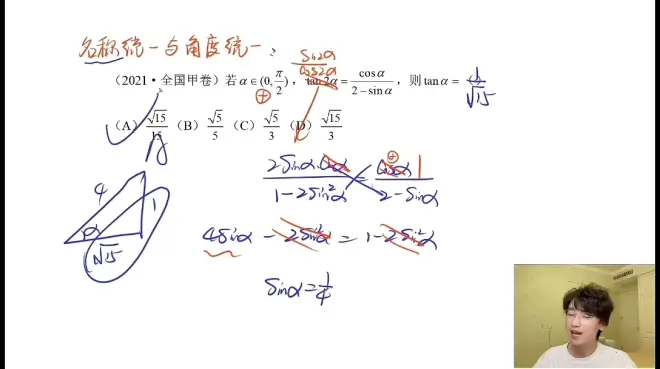 名称统一与角度统一:
sin2α
cos2α
(2021·全国甲卷)若 α∈(0, π/2), tan2α = cosα/(2−sinα), 则 tanα = 1/√15
⊕
(A) √15/15 (B) √5/5 (C) √5/3 (D) √15/3
2sinα·cosα/(1−2sin²α) = cosα/(2−sinα)
⊕ 1
4 1 α √15
4sinα − 2sin²α = 1−2sin²α
sinα=1/4